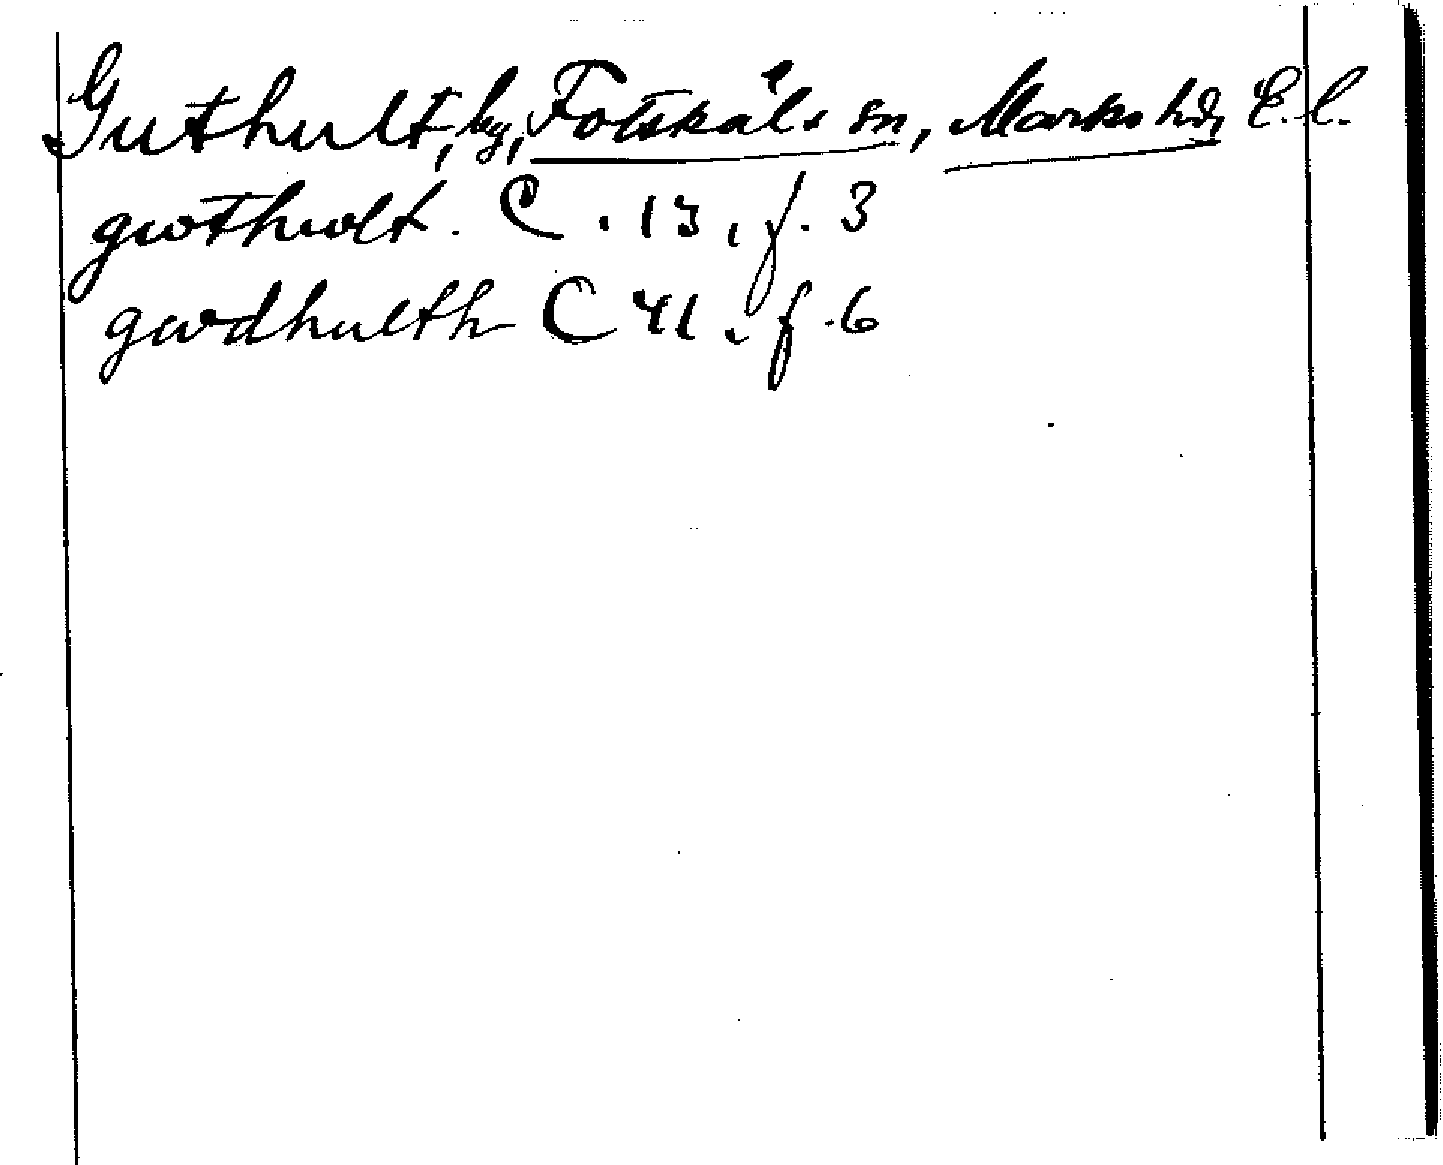 Guthult, by, Fotskäls sn, Marks hd, E.l.
gwthwlt. C. 13, f. 3
gwdhulth C 41, f. 6